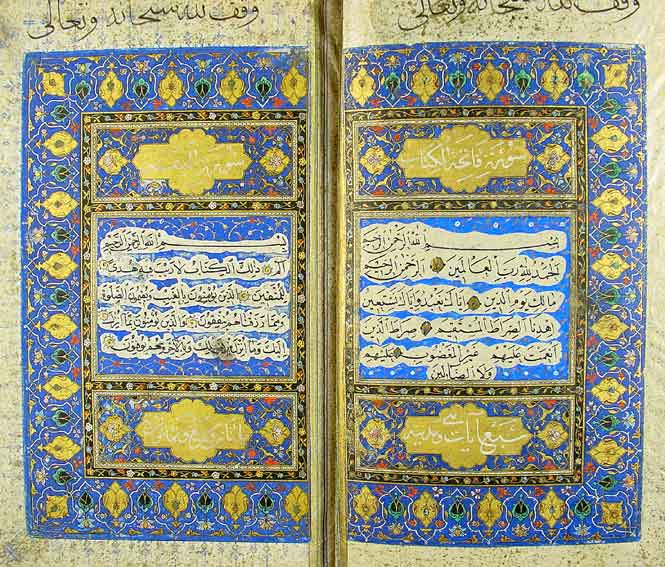 وقف لله سبحانه وتعالى
سورة فاتحة الكتاب
بسم الله الرحمن الرحيم
الحمد لله رب العالمين الرحمن الرحيم
مالك يوم الدين اياك نعبد واياك نستعين
اهدنا الصراط المستقيم صراط الذين
انعمت عليهم غير المغضوب عليهم
ولا الضالين
سبع ايات
وقف لله سبحانه وتعالى
سورة البقرة
بسم الله الرحمن الرحيم
الم ذلك الكتاب لا ريب فيه هدى
للمتقين الذين يؤمنون بالغيب ويقيمون الصلوة
ومما رزقناهم ينفقون والذين يؤمنون بما انزل
اليك وما انزل من قبلك وبالاخرة هم يوقنون